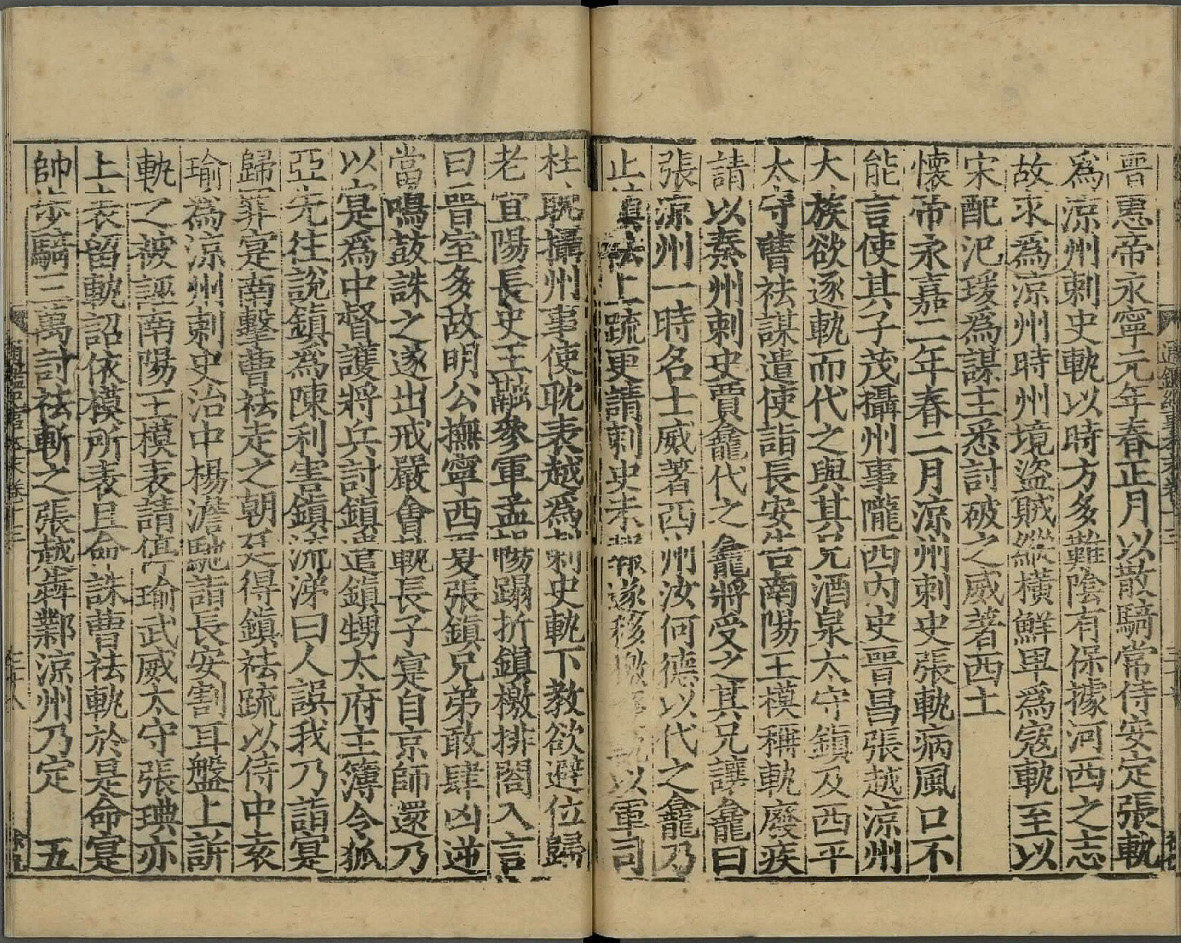 晉惠帝永寧元年春正月以散騎常侍安定張軌
爲涼州刺史軌以時方多難陰有保據河西之志
故求爲涼州時州境盜賊縱橫鮮卑爲寇軌至以
宋配氾瑗爲謀主悉討破之威著西土
懷帝永嘉二年春二月涼州刺史張軌病風口不
能言使其子茂攝州事隴西內史晉昌張越涼州
大族欲逐軌而代之與其兄酒泉太守鎮及西平
太守曹祛謀遣使詣長安告南陽王模稱軌廢疾
請以秦州刺史賈龕代之龕將受之其兄讓龕曰
張涼州一時名士威著西州汝何德以代之龕乃
止鎮祛上疏更請刺史未報遂移檄以軍司
杜耽攝州事使耽表越爲刺史軌下教欲避位歸
老宜陽長史王融參軍孟暢蹋折鎮檄排閤入言
曰晉室多故明公撫寧西夏張鎮兄弟敢肆凶逆
當鳴鼓誅之遂出戒嚴會軌長子寔自京師還乃
以寔爲中督護將兵討鎮遣鎮甥太府主簿令狐
亞先往說鎮爲陳利害鎮流涕曰人誤我乃詣寔
歸罪寔南擊曹祛走之朝廷得鎮祛疏以侍中袁
瑜爲涼州刺史治中楊澹馳詣長安割耳盤上訴
軌之被誣南陽王模表請停瑜武威太守張琠亦
上表留軌詔依模所表且命誅曹祛軌於是命寔
帥步騎三萬討祛斬之張越犇鄴涼州乃定　五